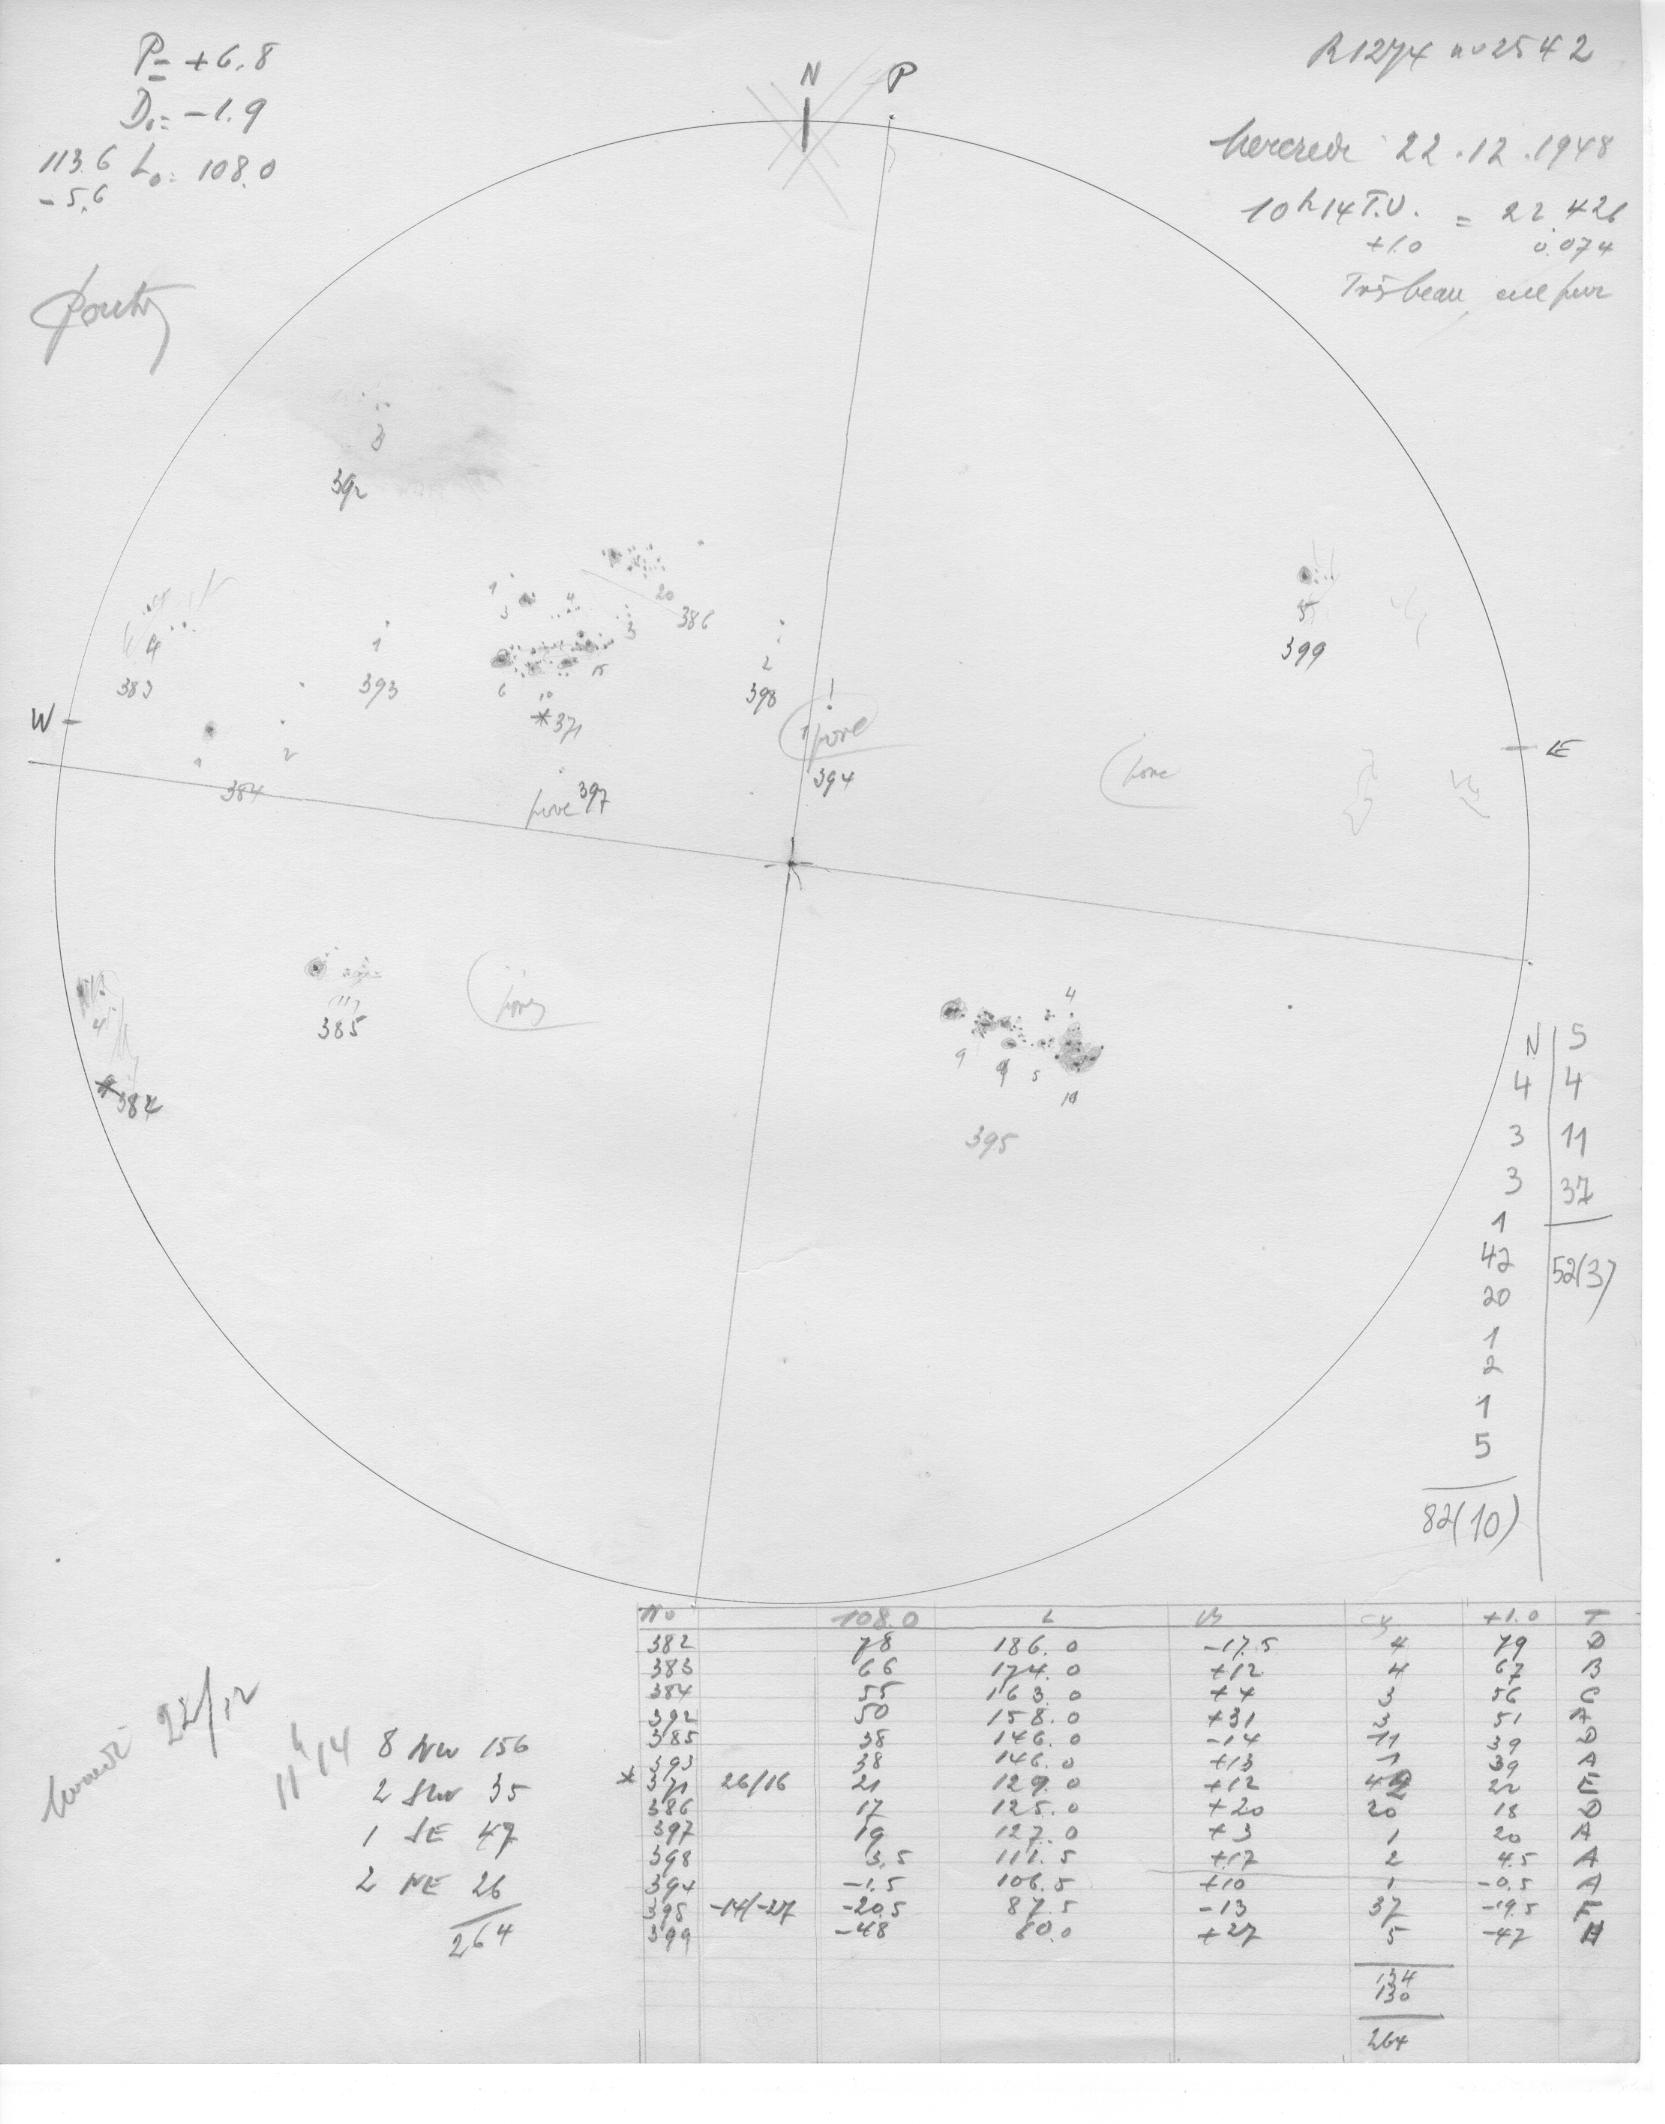 P = +6.8
D₀ = -1.9
113.6 L₀ = 108.0
-5.6
N P
R1274 no 2542
Mercredi 22.12.1948
10h14 T.U. = 22.426
+1.0 0.074
Très beau ciel pur
3
392
20
386
1
3
4
3
6
10
15
*371
4
383
1
393
2
398
1
pore
394
5
399
W
E
2
384
pore 397
pore
385
pores
4
*382
4
9
9
5
10
395
N S
4 4
3 11
3 37
1
42 52(3)
20
1
2
1
5
82(10)
No 108.0 L B +1.0 T
382 78 186.0 -17.5 4 79 D
383 66 174.0 +12 4 67 B
384 55 163.0 +4 3 56 C
392 50 158.0 +31 3 51 A
385 38 146.0 -14 11 39 D
393 38 146.0 +13 1 39 A
* 371 26/16 21 129.0 +12 42 22 E
386 17 125.0 +20 20 18 D
397 19 127.0 +3 1 20 A
398 3.5 111.5 +17 2 4.5 A
394 -1.5 106.5 +10 1 -0.5 A
395 -14/-27 -20.5 87.5 -13 37 -19.5 F
399 -48 60.0 +27 5 -47 H
134
130
264
22/12
11h14
8 NW 156
2 SW 35
1 SE 47
2 NE 26
264